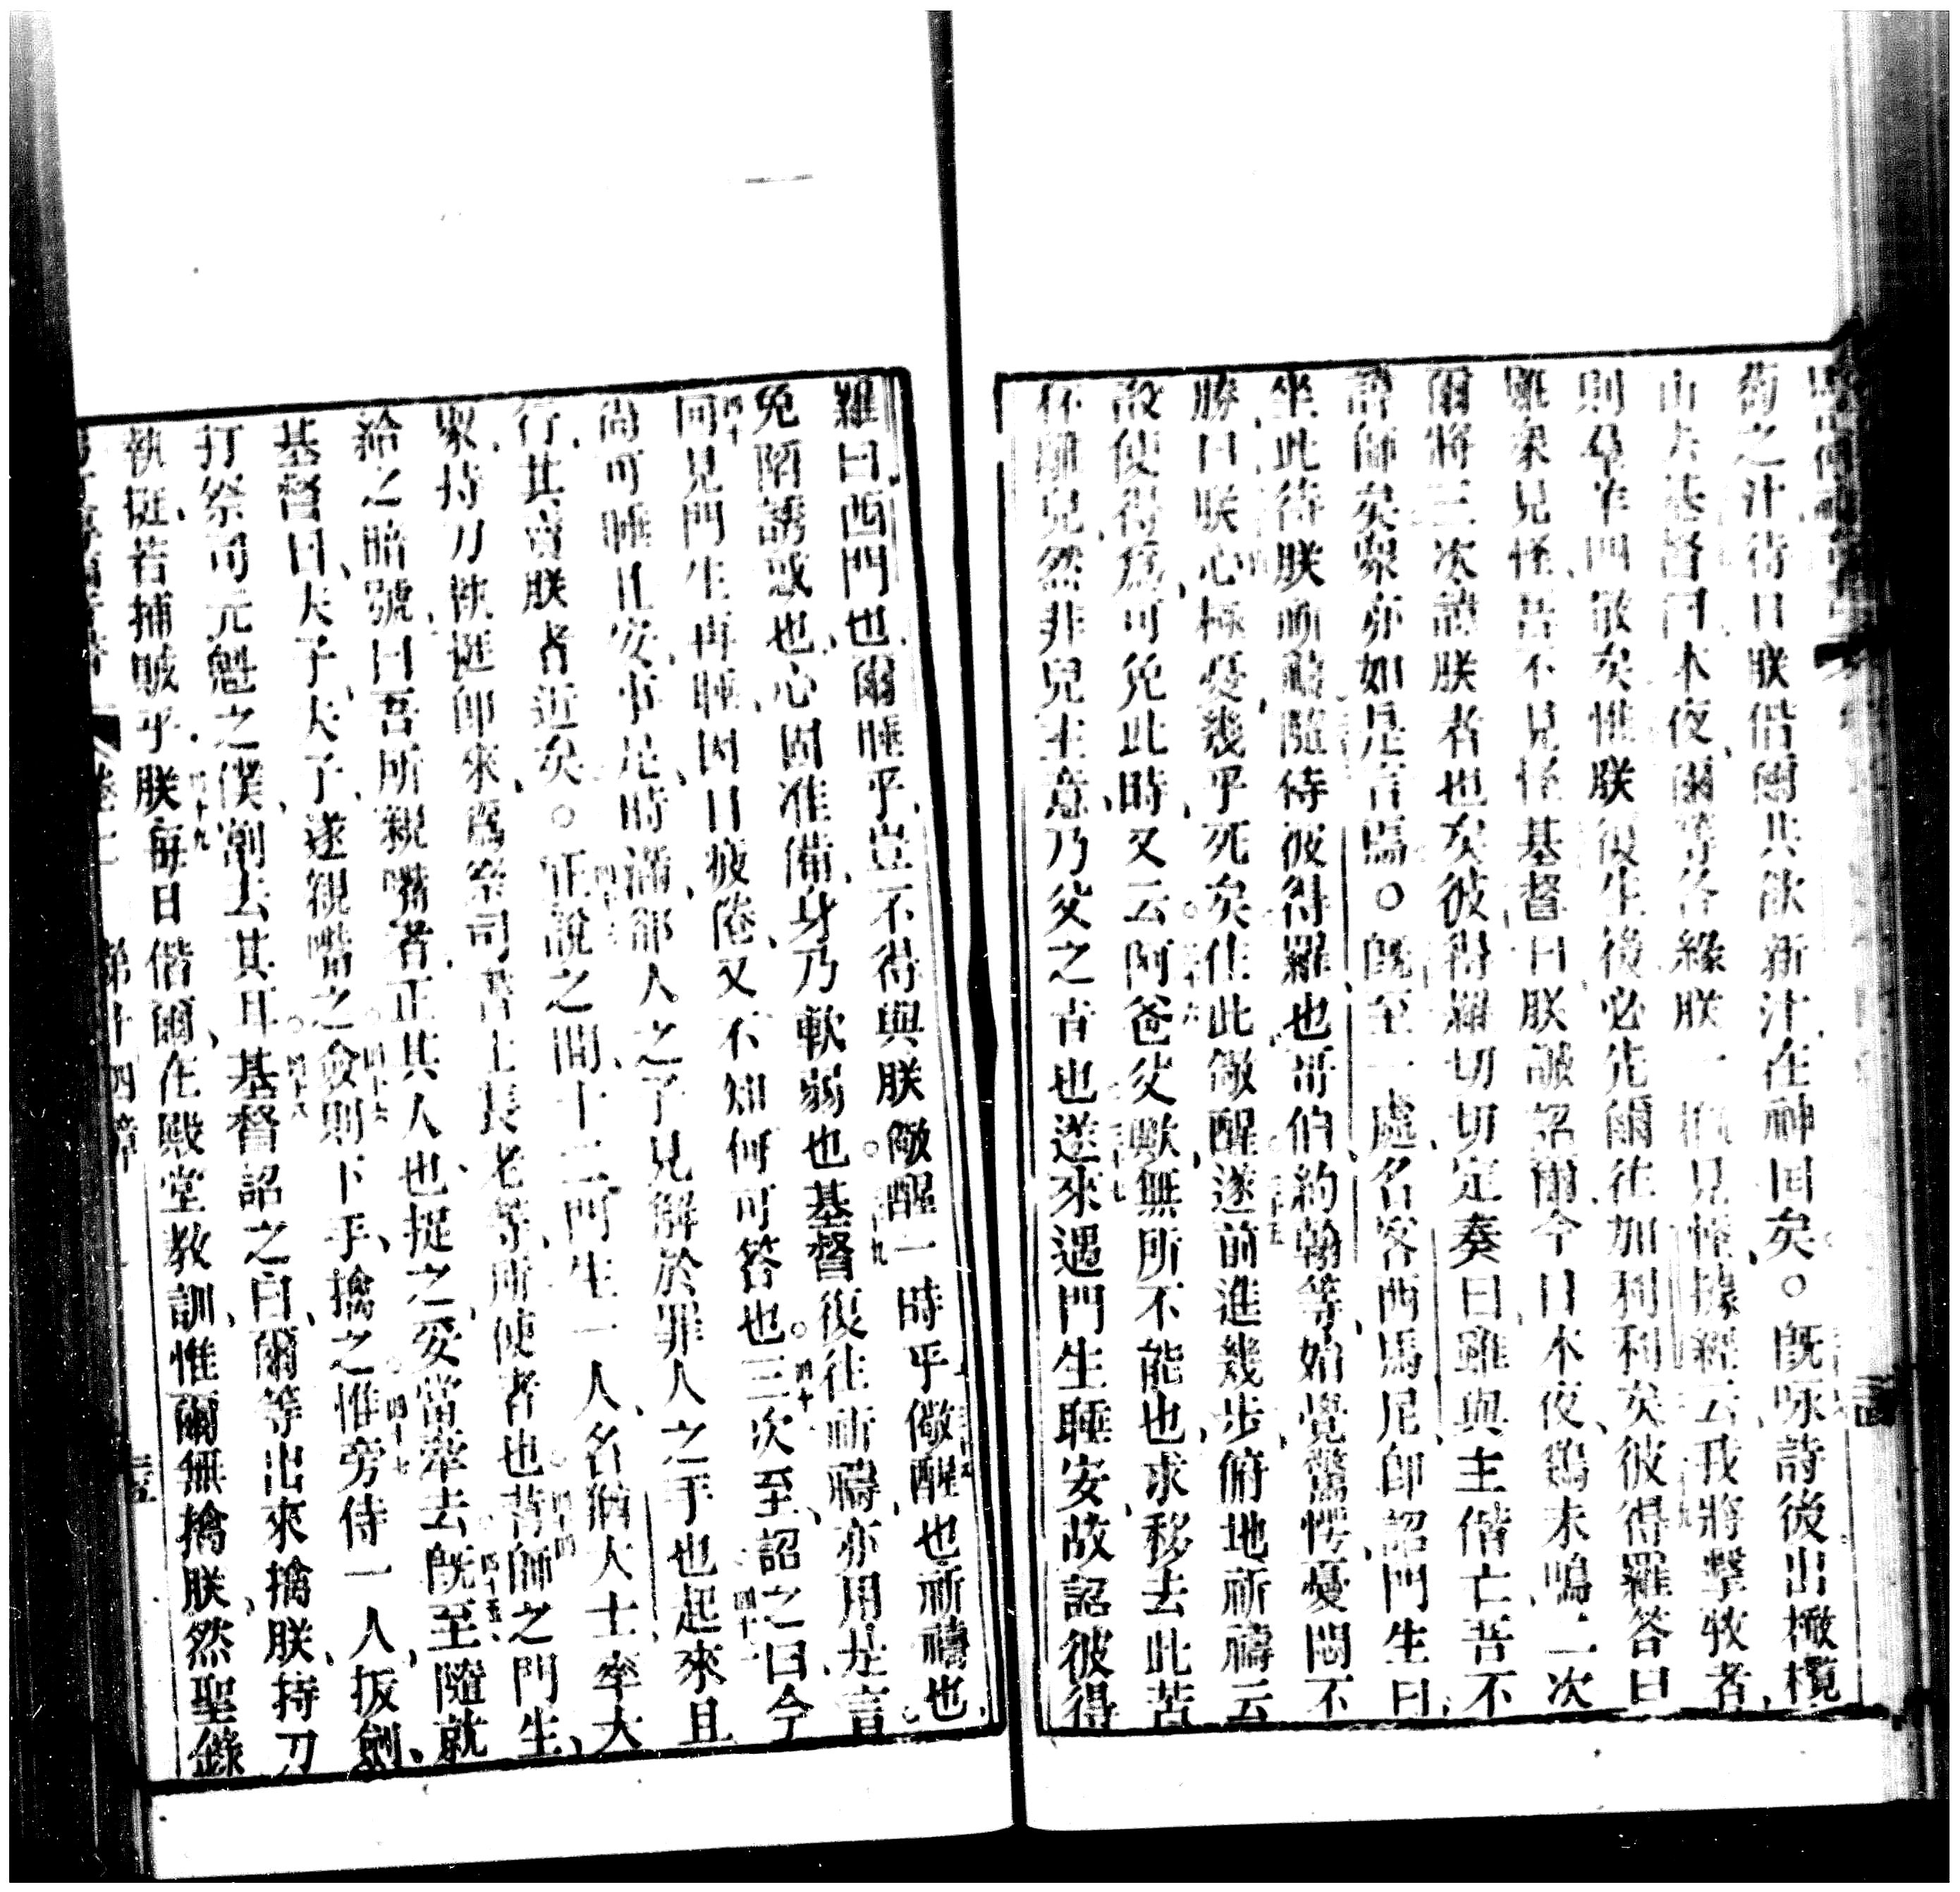 萄之汁待日朕偕爾共飲新汁在神囯矣○旣咏詩後出橄欖
山去基督曰本夜爾等各緣朕一 見怪據經云我將擊牧者
則羣羊四散矣惟朕復生後必先爾往加利利矣彼得羅答曰
雖衆見怪吾不見怪基督曰朕誠詔爾今日本夜鷄未鳴二次
爾將三次諱朕者也矣彼得羅切切定奏曰雖與主偕亡吾不
諱師矣衆亦如是言焉○旣至一處名客西馬尼卽詔門生曰
坐此待朕祈禱隨侍彼得羅也哥伯約翰等始覺驚愕憂悶不
勝曰朕心極憂幾乎死矣住此儆醒遂前進幾步俯地祈禱云
設使得爲可免此時又云阿爸父歟無所不能也求移去此苦
杯離兒然非兒主意乃父之旨也遂來遇門生睡安故詔彼得
羅曰西門也爾睡乎豈不得與朕儆醒一時乎儆醒也祈禱也
免陷誘惑也心固准備身乃軟弱也基督復往祈禱亦用是言
囘見門生再睡因目疲倦又不知何可答也三次至詔之曰今
尚可睡且安事足時滿郤人之子見解於罪人之手也起來且
行其賣朕者近矣○正說之間十二門生一人名猶大士率大
衆持刀執挺卽來爲祭司書士長老等所使者也背師之門生
給之暗號曰吾所親嘴者正其人也捉之妥當牽去旣至隨就
基督曰夫子夫子遂親嘴之僉則下手擒之惟旁侍一人拔劍
打祭司元魁之僕劊去其耳基督詔之曰爾等出來擒朕持刀
執挺若捕賊乎朕每日偕爾在殿堂教訓惟爾無擒朕然聖錄
第十四章